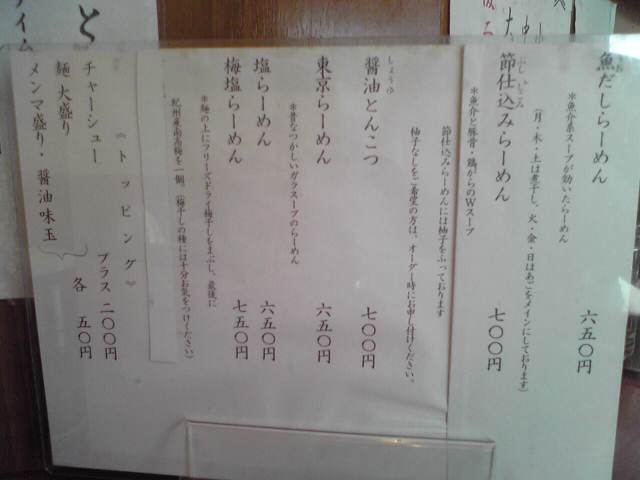 魚だしらーめん 六五〇円
*魚介系スープが効いたらーめん
（月・木・土は煮干し、火・金・日はあごをメインにしております）
節仕込みらーめん 七〇〇円
*魚介と豚骨・鶏がらのWスープ
節仕込みらーめんには柚子をふっております
柚子なしをご希望の方は、オーダー時にお申し付けください。
醤油とんこつ 七〇〇円
しょうゆ
東京らーめん 六五〇円
*昔なつかしいガラスープのらーめん
塩らーめん 六五〇円
梅塩らーめん 七五〇円
*麺の上にフリーズドライ梅干しをまぶし、最後に
紀州産南高梅を一個。（梅干しの種には十分お気をつけください）
《トッピング》
チャーシュー プラス二〇〇円
麺大盛り
メンマ盛り・醤油味玉 各 五〇円
と
タイム